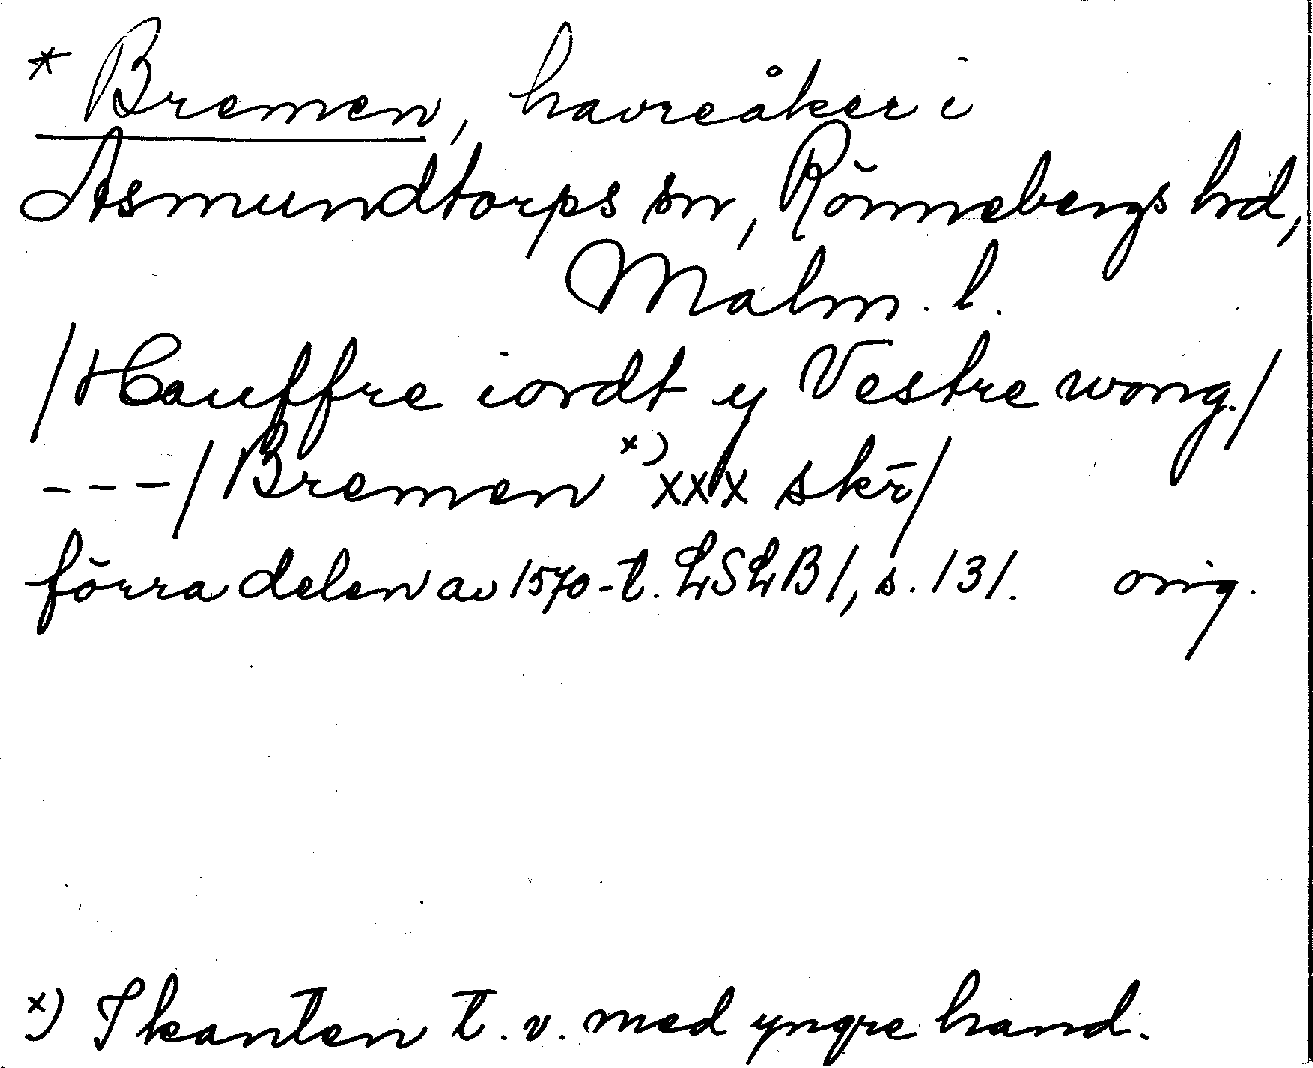 * Bremen, havreåker i
Asmundtorps sn, Rönnebergs hd,
Malm. l.
/Hauffre iordt y Vestre wong./
---/Bremen x) xxx skr̄/
förra delen av 1570-t. LSLB 1, s. 131. orig.
x) I kanten t. v. med yngre hand.